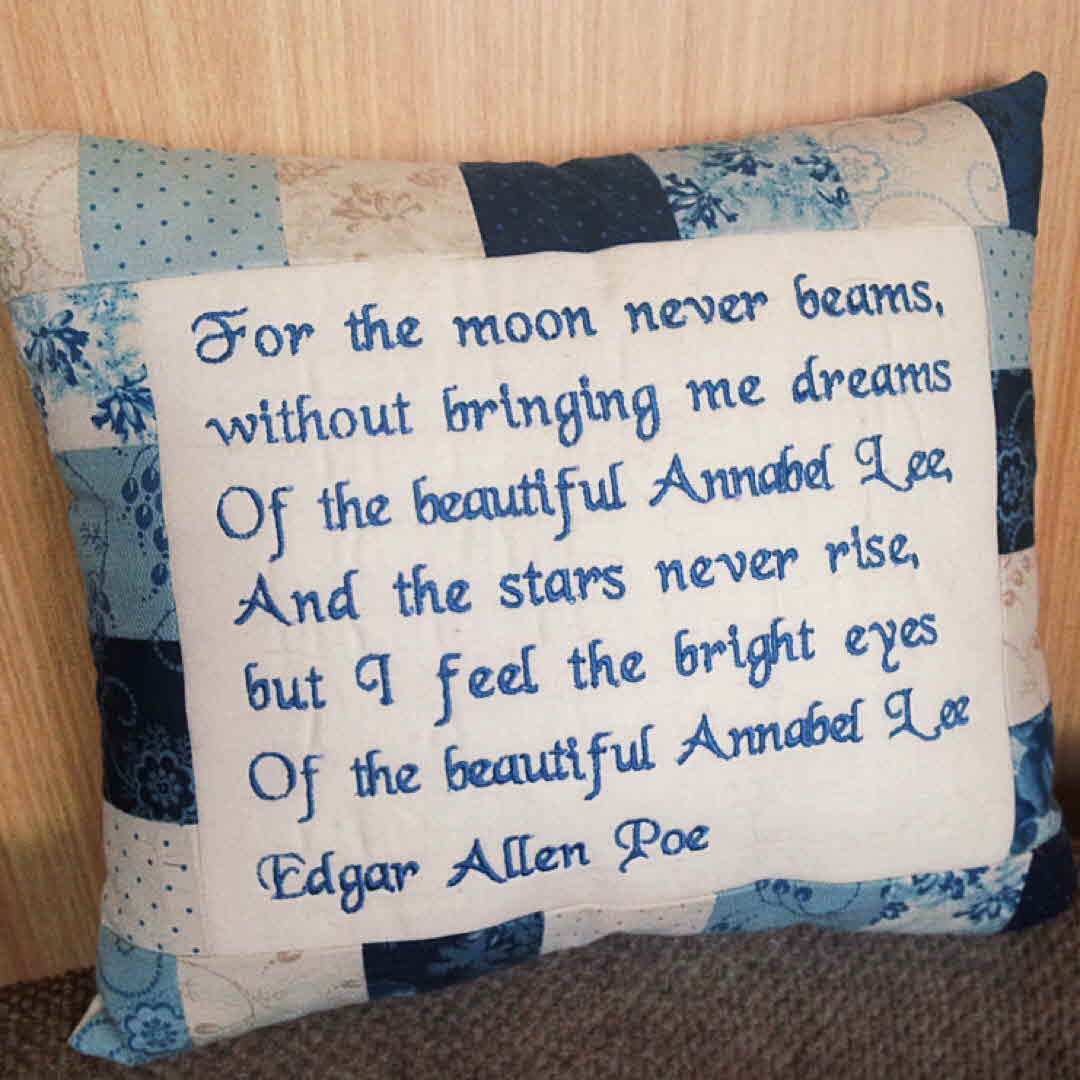 For the moon never beams,
without bringing me dreams
Of the beautiful Annabel Lee,
And the stars never rise,
but I feel the bright eyes
Of the beautiful Annabel Lee
Edgar Allen Poe